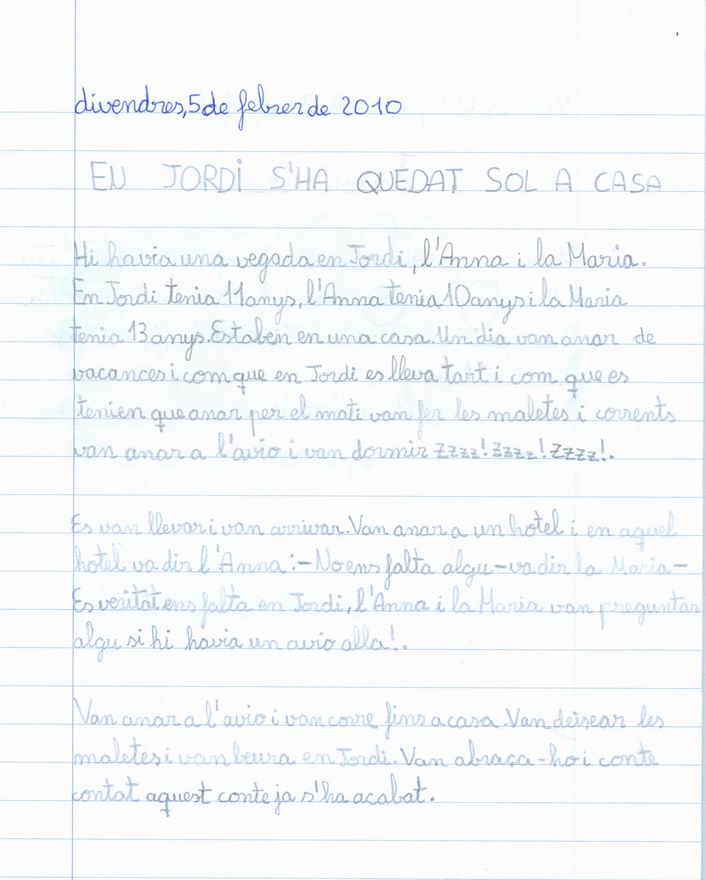 divendres, 5 de febrer de 2010
EN JORDI S'HA QUEDAT SOL A CASA
Hi havia una vegada en Jordi, l'Anna i la Maria.
En Jordi tenia 11 anys, l'Anna tenia 10 anys i la Maria
tenia 13 anys. Estaben en una casa. Un dia van anar de
vacances i com que en Jordi es lleva tart i com que es
tenien que anar per el mati van fer les maletes i corrents
van anar a l'avio i van dormir Zzzz! Zzzz! Zzzz!.
Es van llevar i van arrivar. Van anar a un hotel i en aquel
hotel va dir l'Anna:-No ens falta algu-va dir la Maria-
Es veritat ens falta en Jordi, l'Anna i la Maria van preguntar
algu si hi havia un avio alla!.
Van anar a l'avio i van corre fins a casa. Van deisear les
maletes i van beura en Jordi. Van abraça-ho i conte
contat aquest conte ja s'ha acabat.